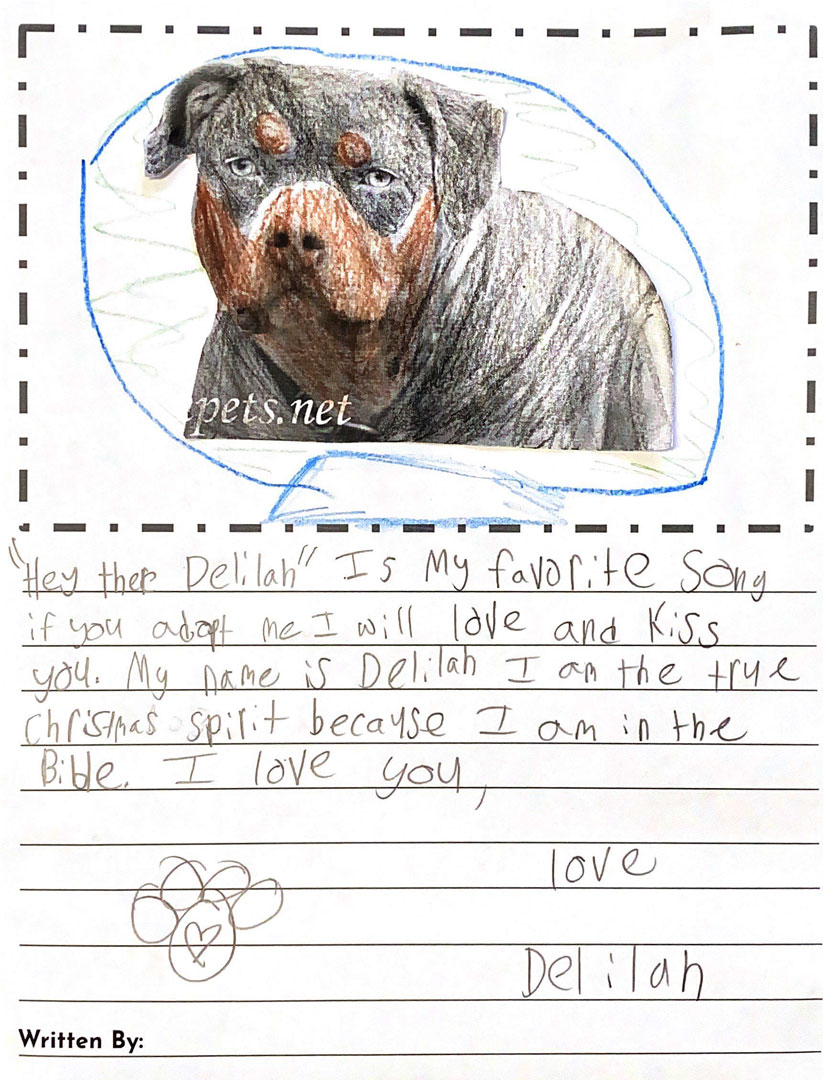 pets.net
"Hey ther Delilah" Is My favorite Song
if you adopt me I will love and Kiss
you. My name is Delilah I am the true
Christmas spirit because I am in the
Bible. I love you,
love
Delilah
Written By: